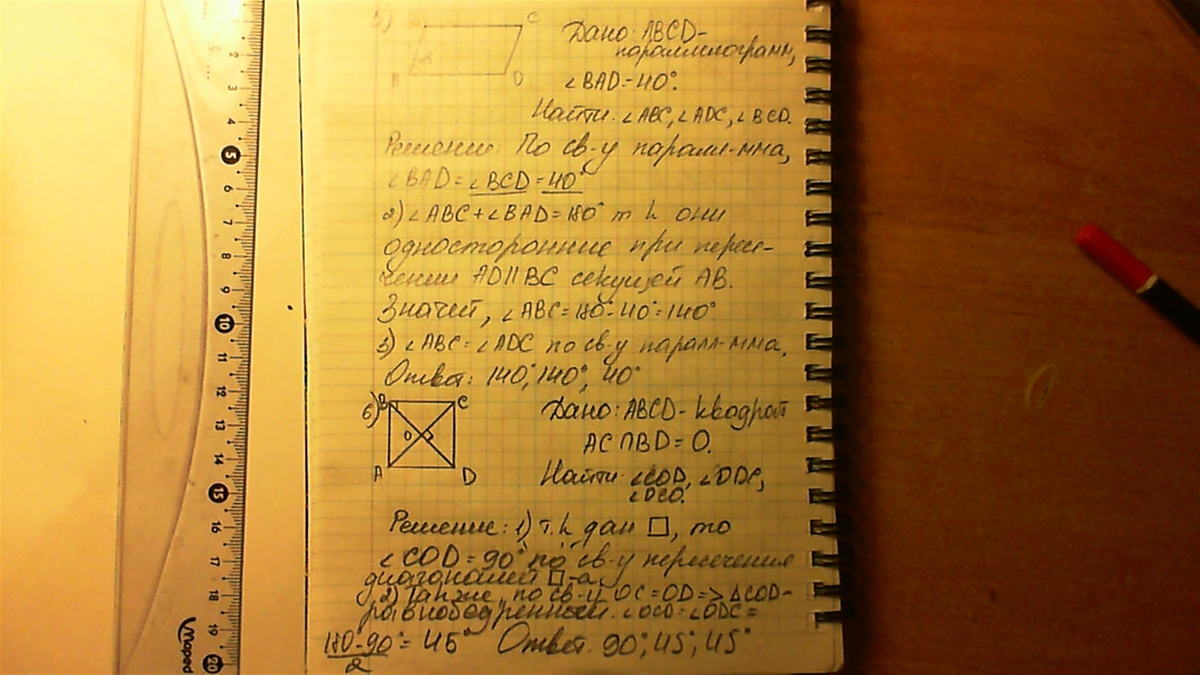 5)
C
D
Дано: ABCD-
параллелограмм,
∠BAD=40°.
Найти: ∠ABC, ∠ADC, ∠BCD.
Решение: По св-у паралл-мма,
∠BAD=∠BCD=40°
2) ∠ABC+∠BAD=180° т к они
односторонние при пересе-
чении AD||BC секущей AB.
Значей, ∠ABC=180°-40°=140°
3) ∠ABC=∠ADC по св-у паралл-мма.
Ответ: 140°, 140°, 40°
6)
B C
O
A D
Дано: ABCD- квадрат
AC∩BD=O.
Найти: ∠COD, ∠ODC,
∠DCO.
Решение: 1) т.к дан □, то
∠COD=90° по св-у пересечения
диагоналей □-а.
2) Также, по св-у OC=OD=>ΔCOD-
равнобедренный. ∠OCD=∠ODC=
180°-90°/2=45° Ответ: 90°, 45°, 45°
2
3
4
5
6
7
8
9
10
11
12
13
14
15
16
17
18
19
20
Maped